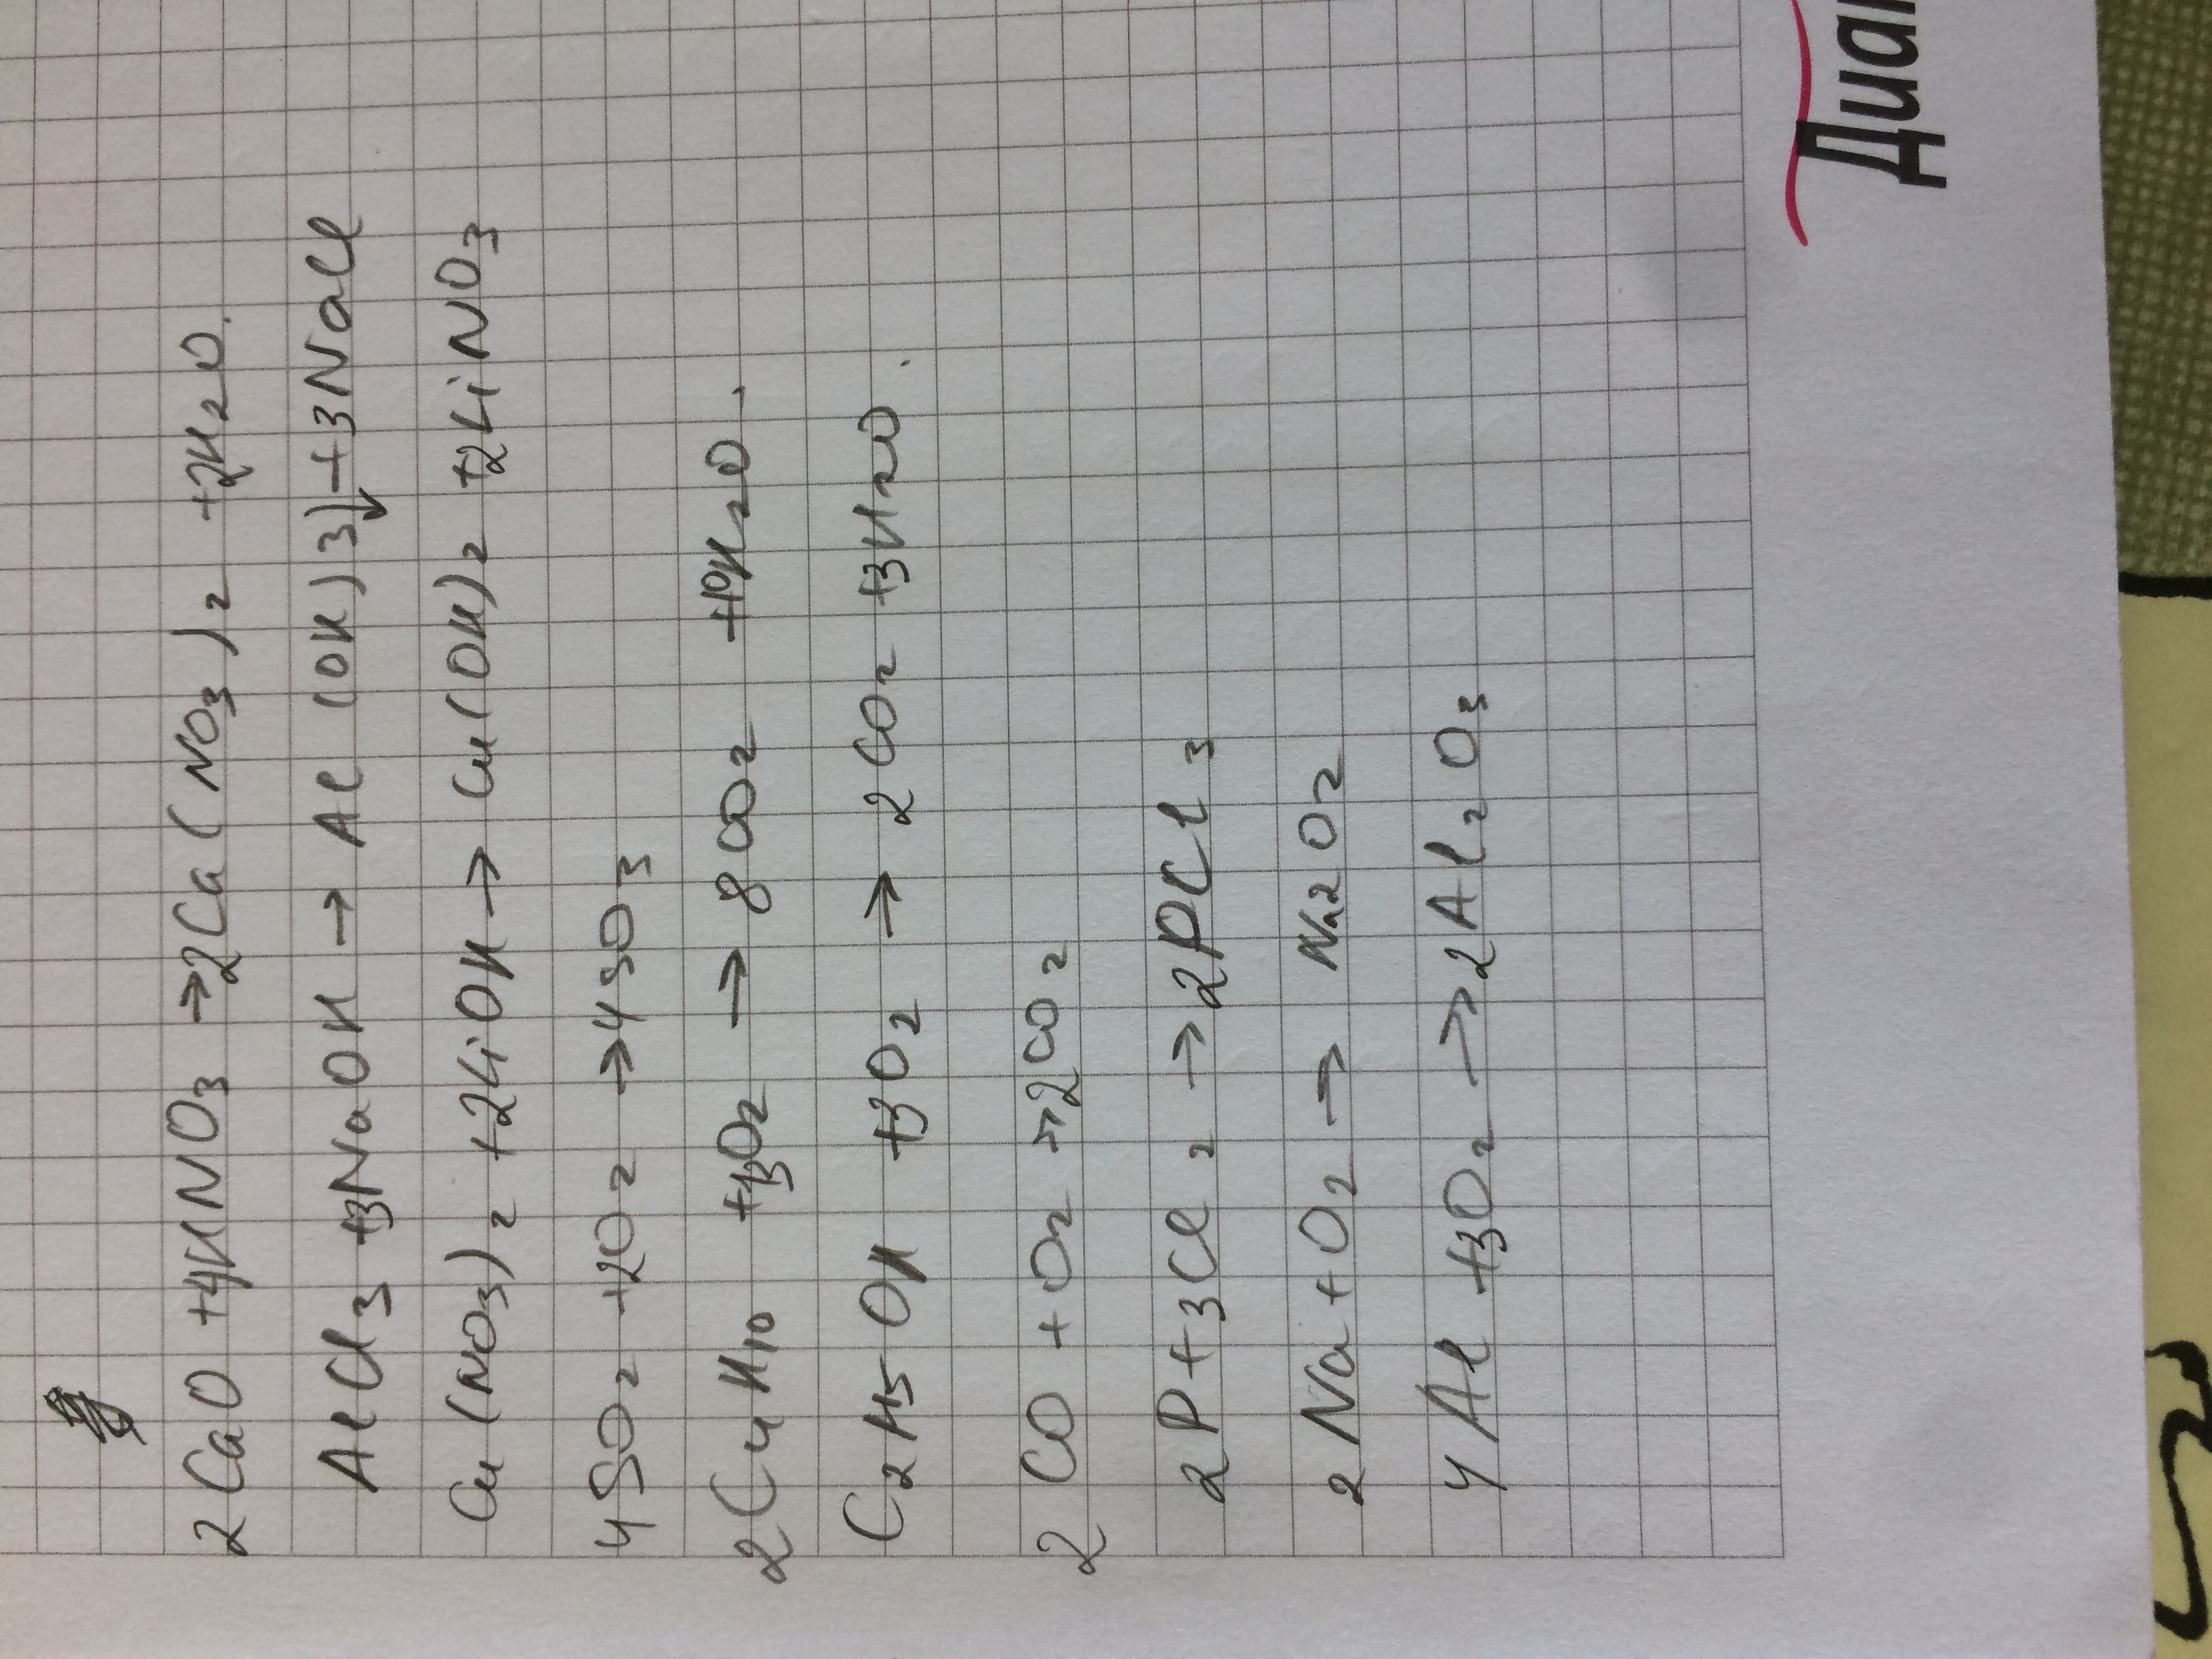 2CaO + 4HNO₃ → 2Ca(NO₃)₂ + 2H₂O.
AlCl₃ + 3NaOH → Al(OH)3)↓ + 3NaCl
Cu(NO₃)₂ + 2LiOH → Cu(OH)₂ + 2LiNO₃
4SO₂ + 2O₂ → 4SO₃
2C₄H₁₀ + 13O₂ → 8CO₂ + 10H₂O.
C₂H₅OH + 3O₂ → 2CO₂ + 3H₂O.
2CO + O₂ → 2CO₂
2P + 3Cl₂ → 2PCl₃
2Na + O₂ → Na₂O₂
4Al + 3O₂ → 2Al₂O₃